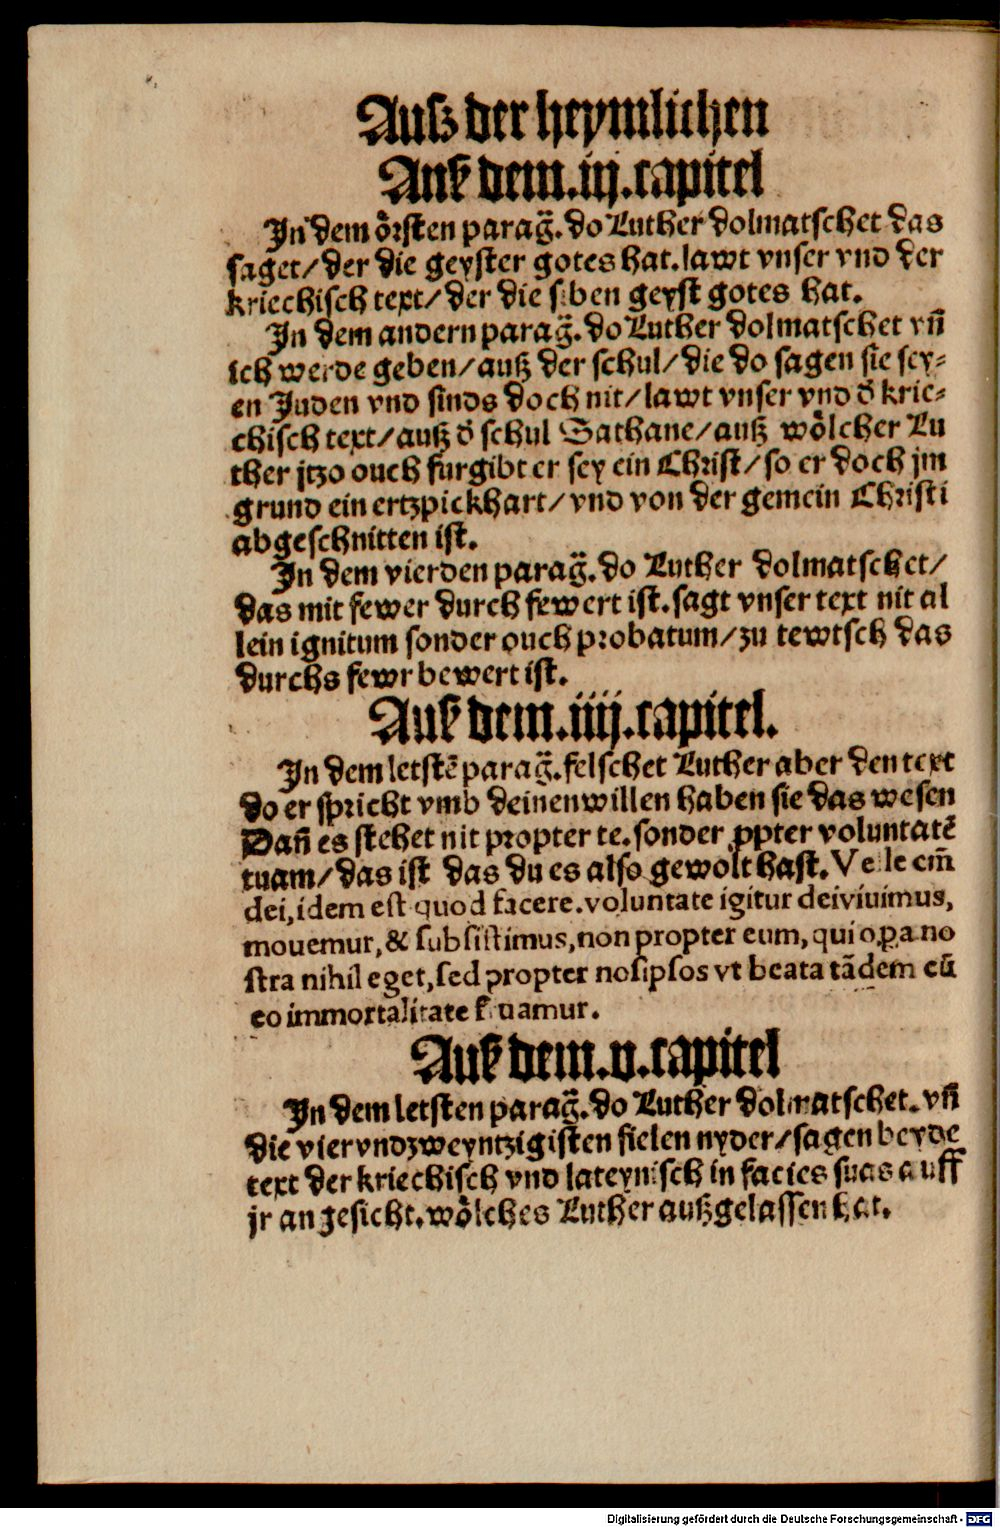 Auſz der heymlichen
Auß dem.iij.capitel
In dem oͤrſten parag̃. do Luther dolmatſchet das
ſaget/ der die geyſter gotes hat. lawt vnſer vnd der
kriechiſch text/ der die ſiben geyſt gotes hat.
In dem andern parag̃. do Luther dolmatſchet vñ
ich werde geben/ auß der ſchul/ die do ſagen ſie ſey⸗
en Juden vnd ſinds doch nit/ lawt vnſer vnd d̓ krie⸗
chiſch text/ auß d̓ ſchul Sathane/ auß woͤlcher Lu
ther jtzo ouch furgibt er ſey ein Chriſt/ ſo er doch jm
grund ein ertzpickhart/ vnd von der gemein Chriſti
abgeſchnitten iſt.
In dem vierden parag̃. do Luther dolmatſchet/
das mit fewer durch fewert iſt. ſagt vnſer text nit al
lein ignitum ſonder ouch probatum/ zu tewtſch das
durchs fewr bewert iſt.
Auß dem.iiij.capitel.
In dem letſtē parag̃. felſchet Luther aber den text
do er ſpricht vmb deinen willen haben ſie das weſen
Dañ es ſtehet nit propter te. ſonder ꝓpter voluntatē
tuam/ das iſt das du es alſo gewolt haſt. Velle em̄
dei, idem eſt quod facere. voluntate igitur dei viuimus,
mouemur, & ſubſiſtimus, non propter eum, qui oꝑa no
ſtra nihil eget, ſed propter noſipſos vt beata tādem cū
eo immortalitate fruamur.
Auß dem.v.capitel
In dem letſten parag̃. do Luther dolmatſchet. vñ
die vier vndzweyntzigiſten fielen nyder/ ſagen beyde
text der kriechiſch vnd lateyniſch in facies ſuas auff
jr angeſicht. woͤlches Luther außgelaſſen hat.
Digitalisierung gefördert durch die Deutsche Forschungsgemeinschaft - DFG